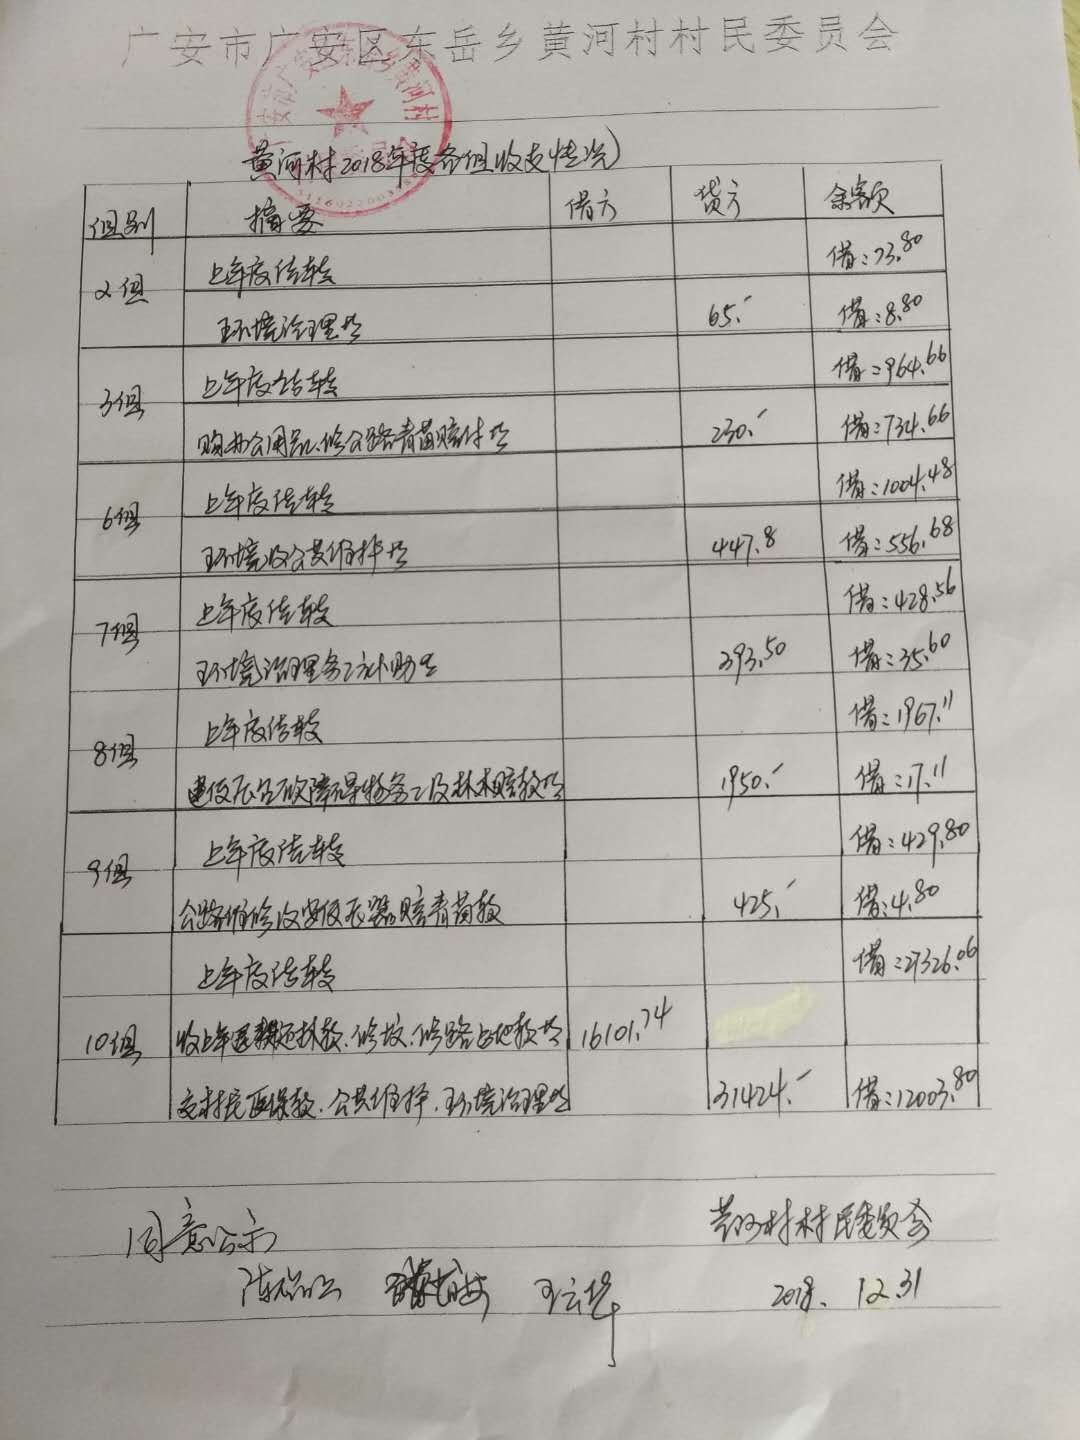 广安市广安区东岳乡黄河村村民委员会
黄河村2018年度各组收支情况
组别 摘要 借方 贷方 余额
2组 上年度结转 借:73.80
环境治理等 65.- 借:8.80
3组 上年度结转 借:964.66
购办公用品、修公路青苗赔付等 230.- 借:734.66
6组 上年度结转 借:1004.48
环境及公共维护等 447.8 借:556.68
7组 上年度结转 借:428.56
环境治理务工补助等 393.50 借:35.60
8组 上年度结转 借:1967.11
障碍物务工及林木赔款等 1950.- 借:17.11
9组 上年度结转 借:429.80
公路维修及安 赔青苗款 425.- 借:4.80
上年度结转 借:27326.06
10组 收上年退耕还林款、修坟、修路占地款等 16101.74
交村民医保款、公共维护、环境治理等 31424.- 借:12003.80
同意公示
黄河村村民委员会
陈 王云华 2018.12.31